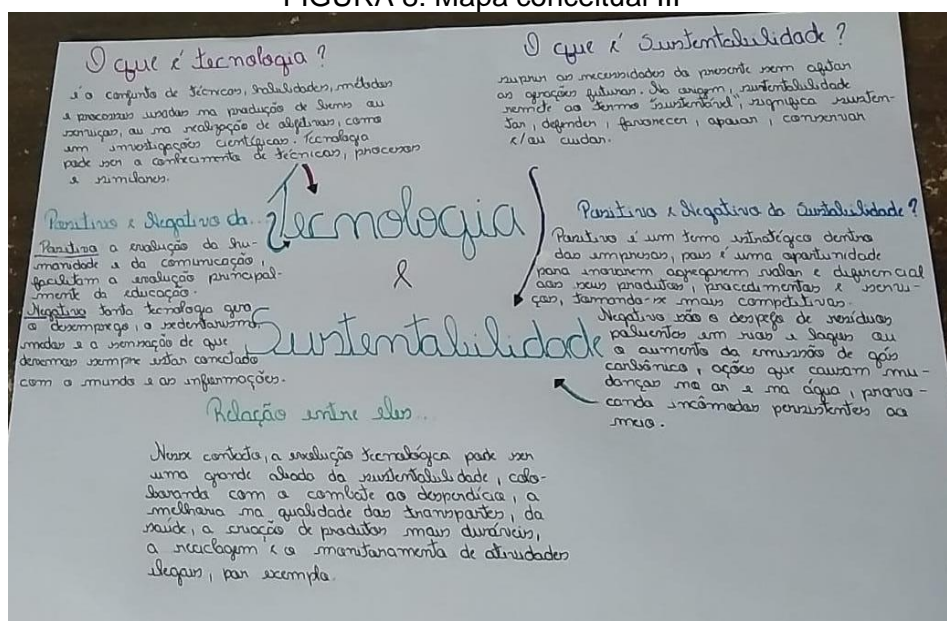 FIGURA 8: Mapa conceitual III
O que é tecnologia?
é o conjunto de técnicas, habilidades, métodos
e processos usados na produção de bens ou
serviços, ou na realização de objetivos, como
em investigações científicas. Tecnologia
pode ser o conhecimento de técnicas, processos
e similares.
O que é Sustentabilidade?
suprir as necessidades do presente sem afetar
as gerações futuras. Na origem, sustentabilidade
remete ao termo "sustentável", significa susten-
tar, defender, favorecer, apoiar, conservar
e/ou cuidar.
Positivo e Negativo da...
Positivo a evolução da hu-
manidade e da comunicação,
facilitam a evolução principal-
mente da educação.
Negativo tanto tecnologia gera
o desemprego, o sedentarismo,
medos e a sensação de que
devemos sempre estar conectado
com o mundo e as informações.
Tecnologia
&
Sustentabilidade
Positivo e Negativo da Sustabilidade?
Positivo é um tema estratégico dentro
das empresas, pois é uma oportunidade
para inovarem agregarem valor e diferencial
aos seus produtos, procedimentos e servi-
ços, tornando-se mais competitivas.
Negativo são o despejo de resíduos
poluentes em rios e lagos ou
o aumento da emissão de gás
carbônico, ações que causam mu-
danças no ar e na água, provo-
cando incômodos persistentes ao
meio.
Relação entre eles...
Nesse contexto, a evolução tecnológica pode ser
uma grande aliada da sustentabilidade, cola-
borando com o combate ao desperdício, a
melhoria na qualidade dos transportes, da
saúde, a criação de produtos mais duráveis,
a reciclagem e o monitoramento de atividades
ilegais, por exemplo.